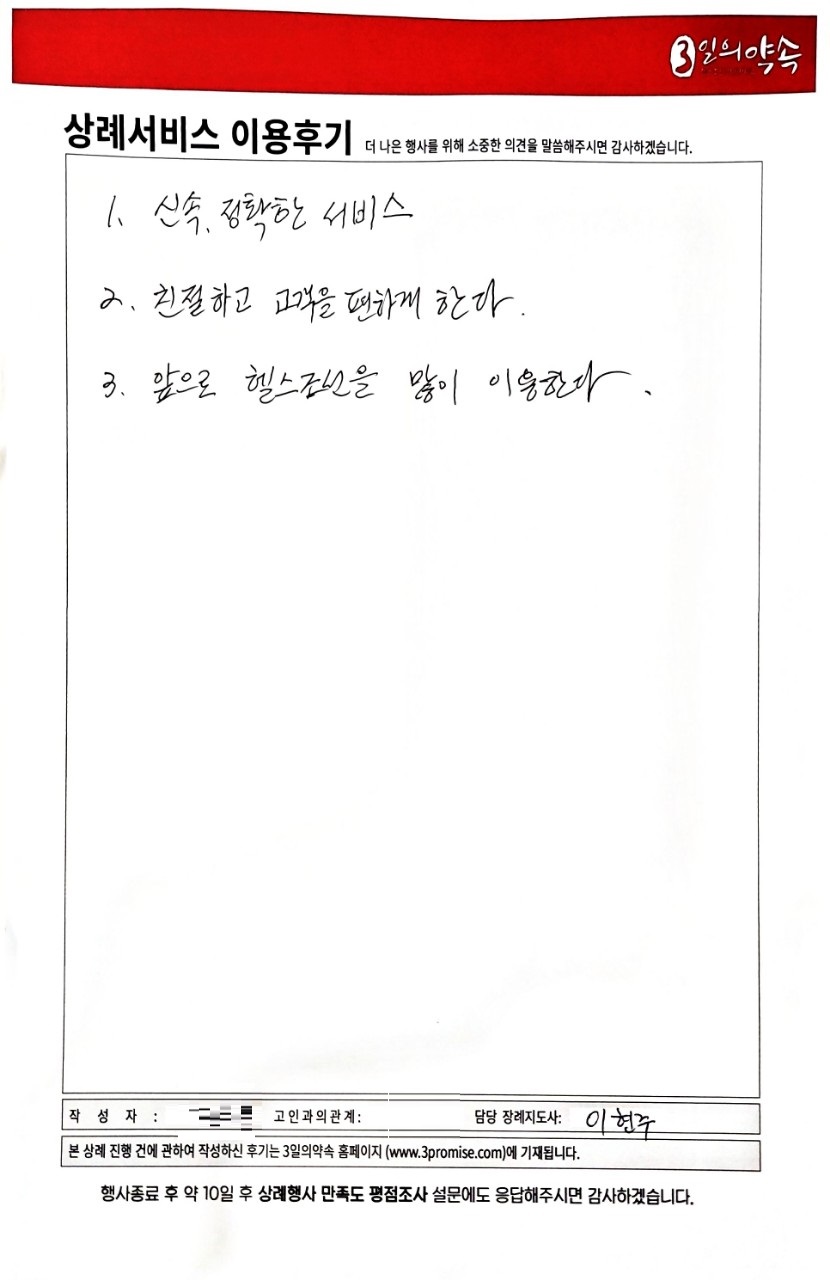 3일의약속
상례서비스 이용후기 더 나은 행사를 위해 소중한 의견을 말씀해주시면 감사하겠습니다.
1. 신속, 정확한 서비스
2. 친절하고 고객을 편하게 한다.
3. 앞으로 헬스조선을 많이 이용한다.
작 성 자 : 고인과의관계: 담당 장례지도사: 이현주
본 상례 진행 건에 관하여 작성하신 후기는 3일의약속 홈페이지 (www.3promise.com)에 기재됩니다.
행사종료 후 약 10일 후 상례행사 만족도 평점조사 설문에도 응답해주시면 감사하겠습니다.